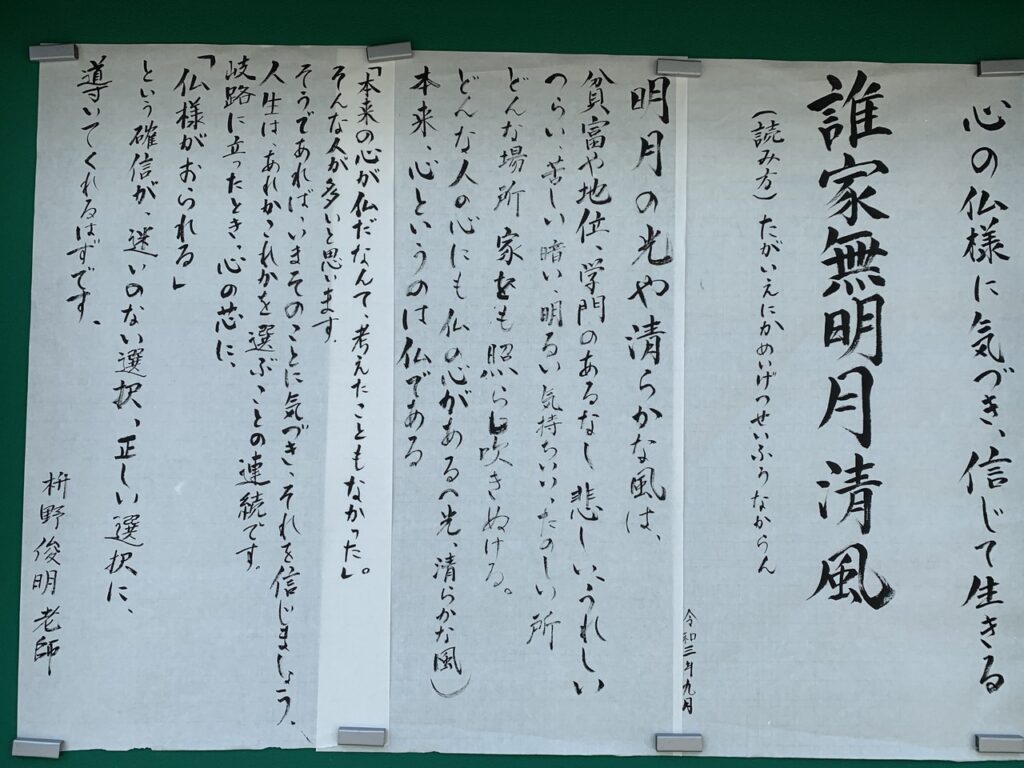 心の仏様に気づき、信じて生きる
誰家無明月清風
(読み方) たがいえにかめいげつせいふうなからん
令和三年九月
明月の光や清らかな風は、
貧富や地位、学門のあるなし 悲しい、うれしい
つらい、苦しい 暗い、明るい 気持ちいい、たのしい 所
どんな場所 家をも照らし吹きぬける。
どんな人の心にも仏の心がある(光、清らかな風)
本来、心というのは仏である
「本来の心が仏だなんて、考えたこともなかった」。
そんな人が多いと思います。
そうであれば、いまそのことに気づき、それを信じましょう、
人生は、あれかこれかを選ぶことの連続です。
岐路に立ったとき、心の芯に、
「仏様がおられる」
という確信が、迷いのない選択、正しい選択に、
導いてくれるはずです、
枡野俊明老師